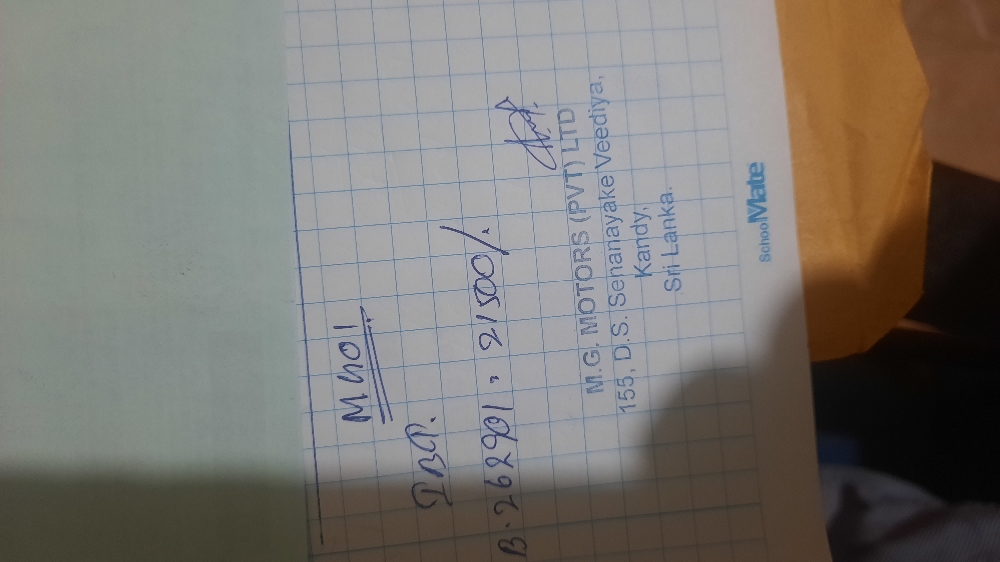 M 401.
IBP.
B. 262901. 21500/.
M.G. MOTORS (PVT) LTD
155, D.S. Senanayake Veediya,
Kandy,
Sri Lanka.
SchoolMate